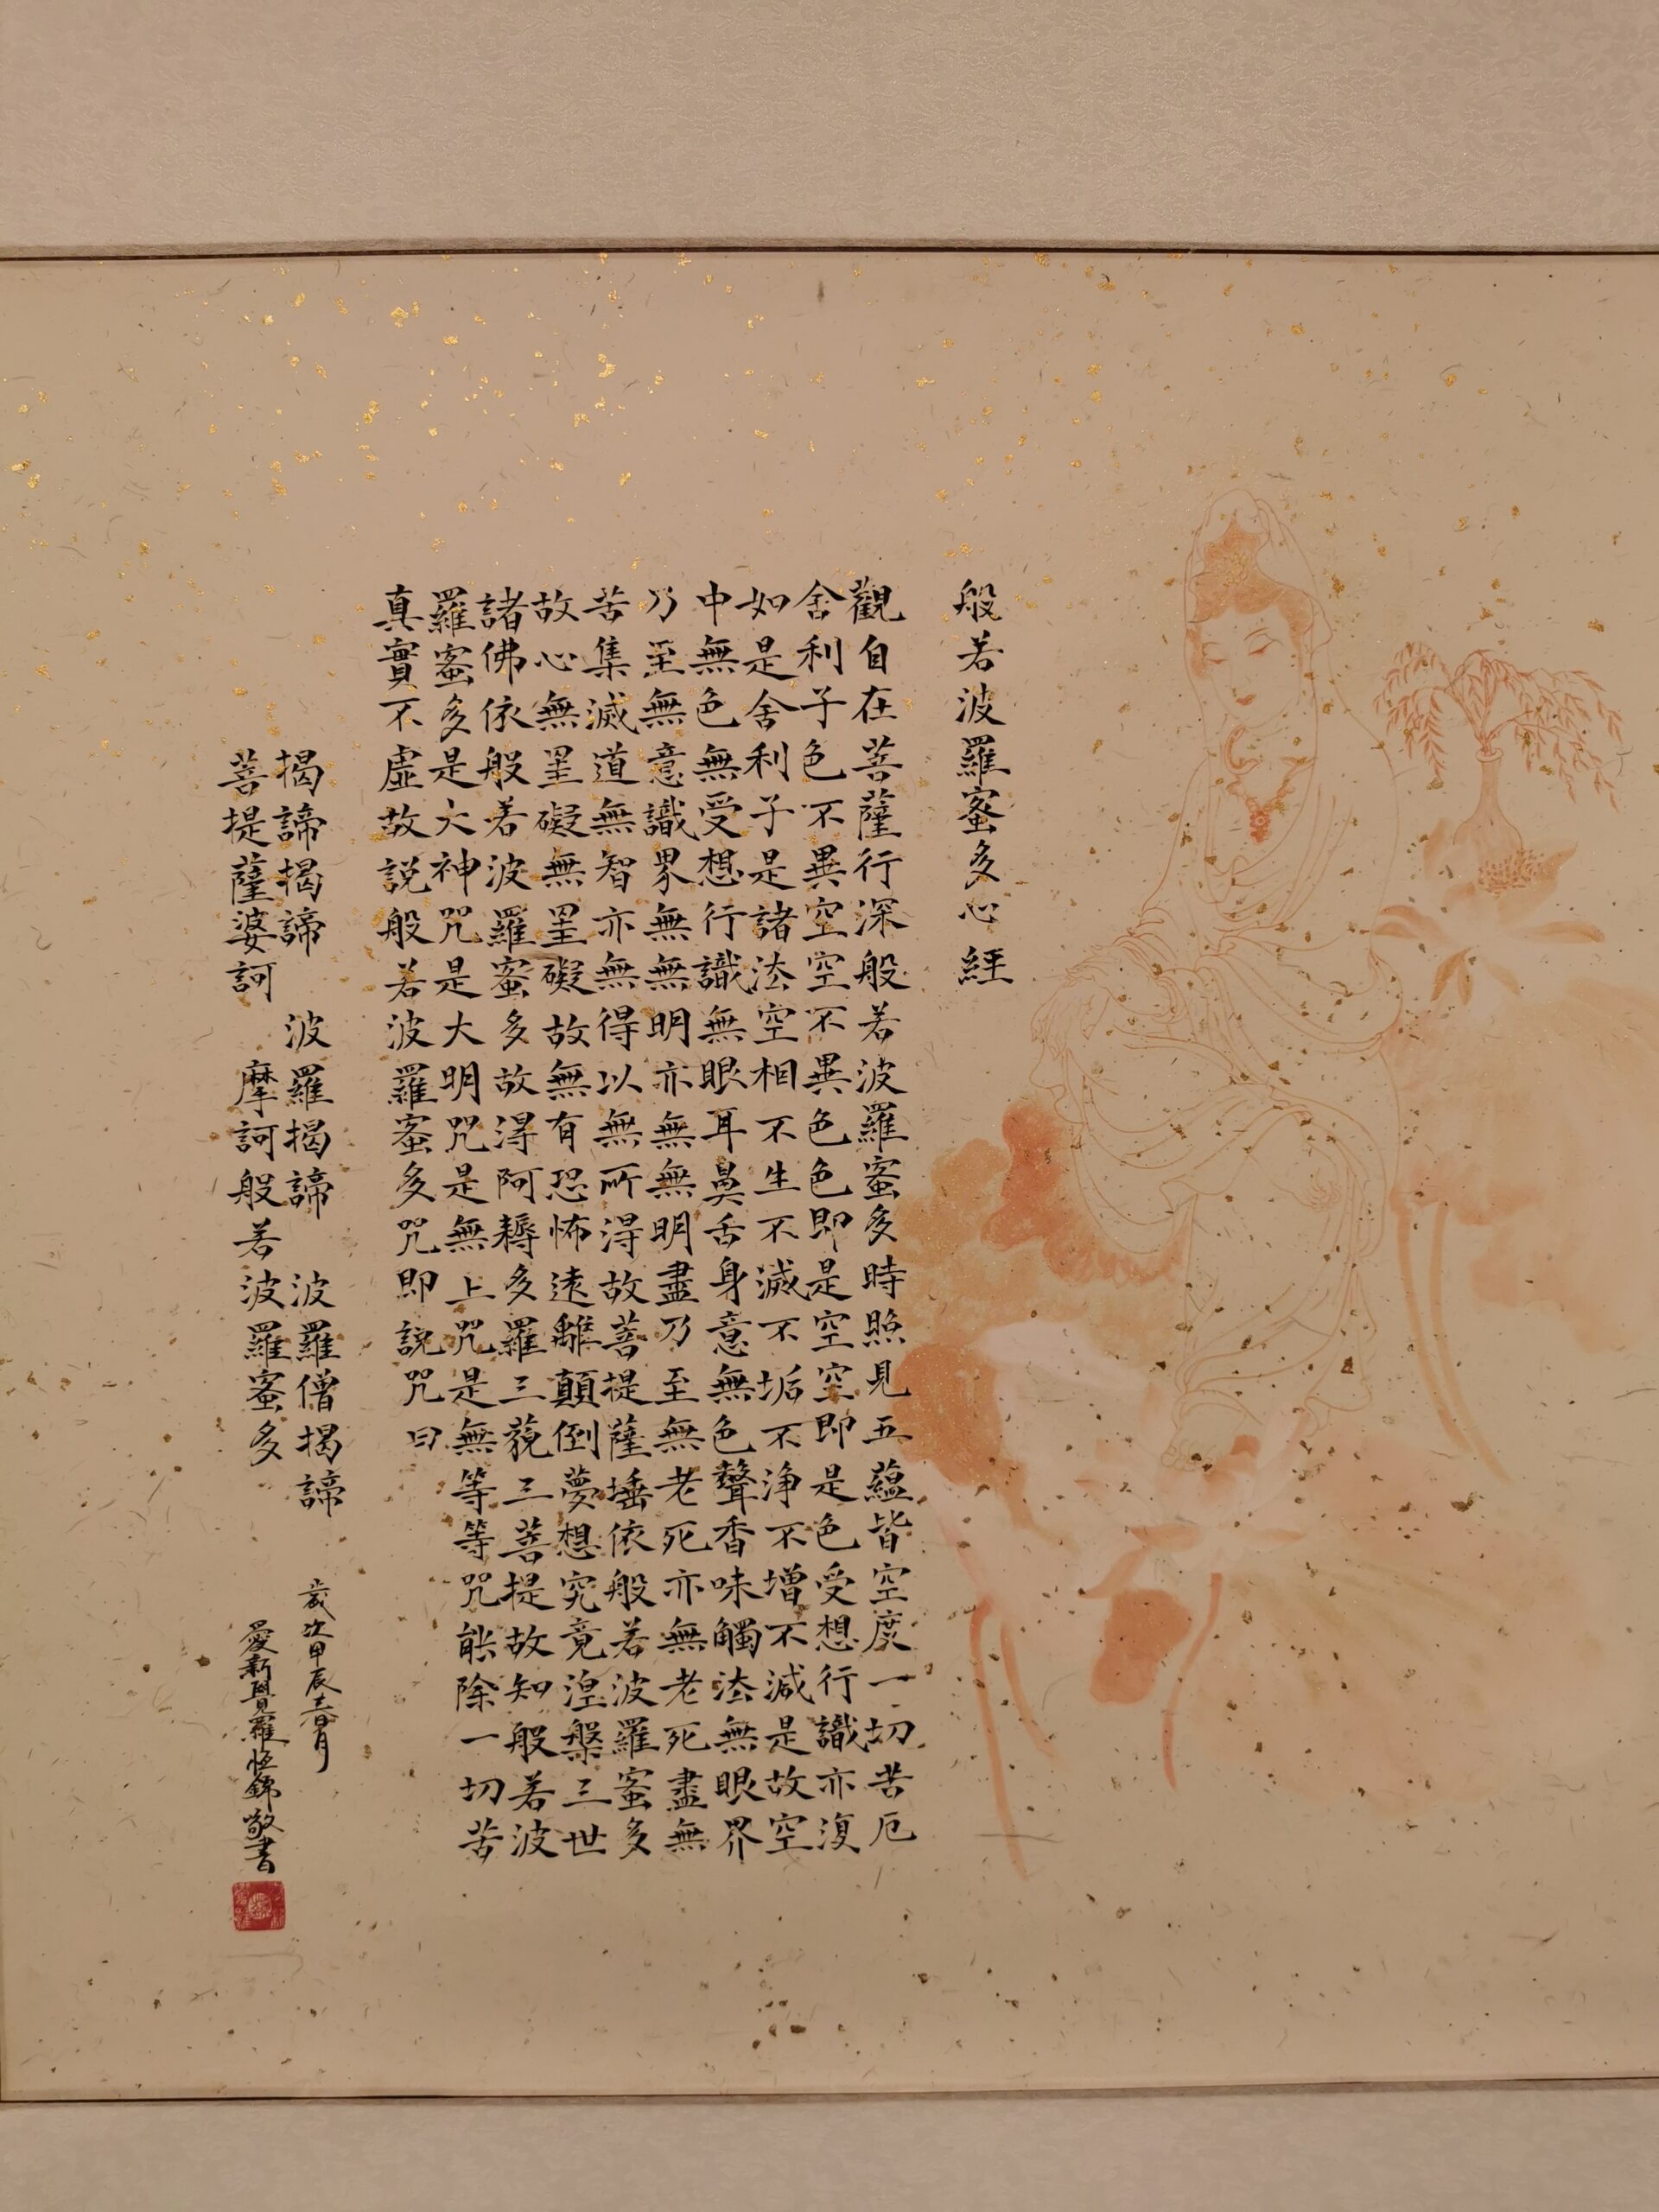 般若波羅蜜多心經
觀自在菩薩行深般若波羅蜜多時照見五蘊皆空度一切苦厄
舍利子色不異空空不異色色即是空空即是色受想行識亦復
如是舍利子是諸法空相不生不滅不垢不淨不增不減是故空
中無色無受想行識無眼耳鼻舌身意無色聲香味觸法無眼界
乃至無意識界無無明亦無無明盡乃至無老死亦無老死盡無
苦集滅道無智亦無得以無所得故菩提薩埵依般若波羅蜜多
故心無罣礙無罣礙故無有恐怖遠離顛倒夢想究竟涅槃三世
諸佛依般若波羅蜜多故得阿耨多羅三藐三菩提故知般若波
羅蜜多是大神咒是大明咒是無上咒是無等等咒能除一切苦
真實不虛故說般若波羅蜜多咒即說咒曰
揭諦揭諦 波羅揭諦 波羅僧揭諦
菩提薩婆訶 摩訶般若波羅蜜多
歲次甲辰春月
愛新覺羅恆錦敬書